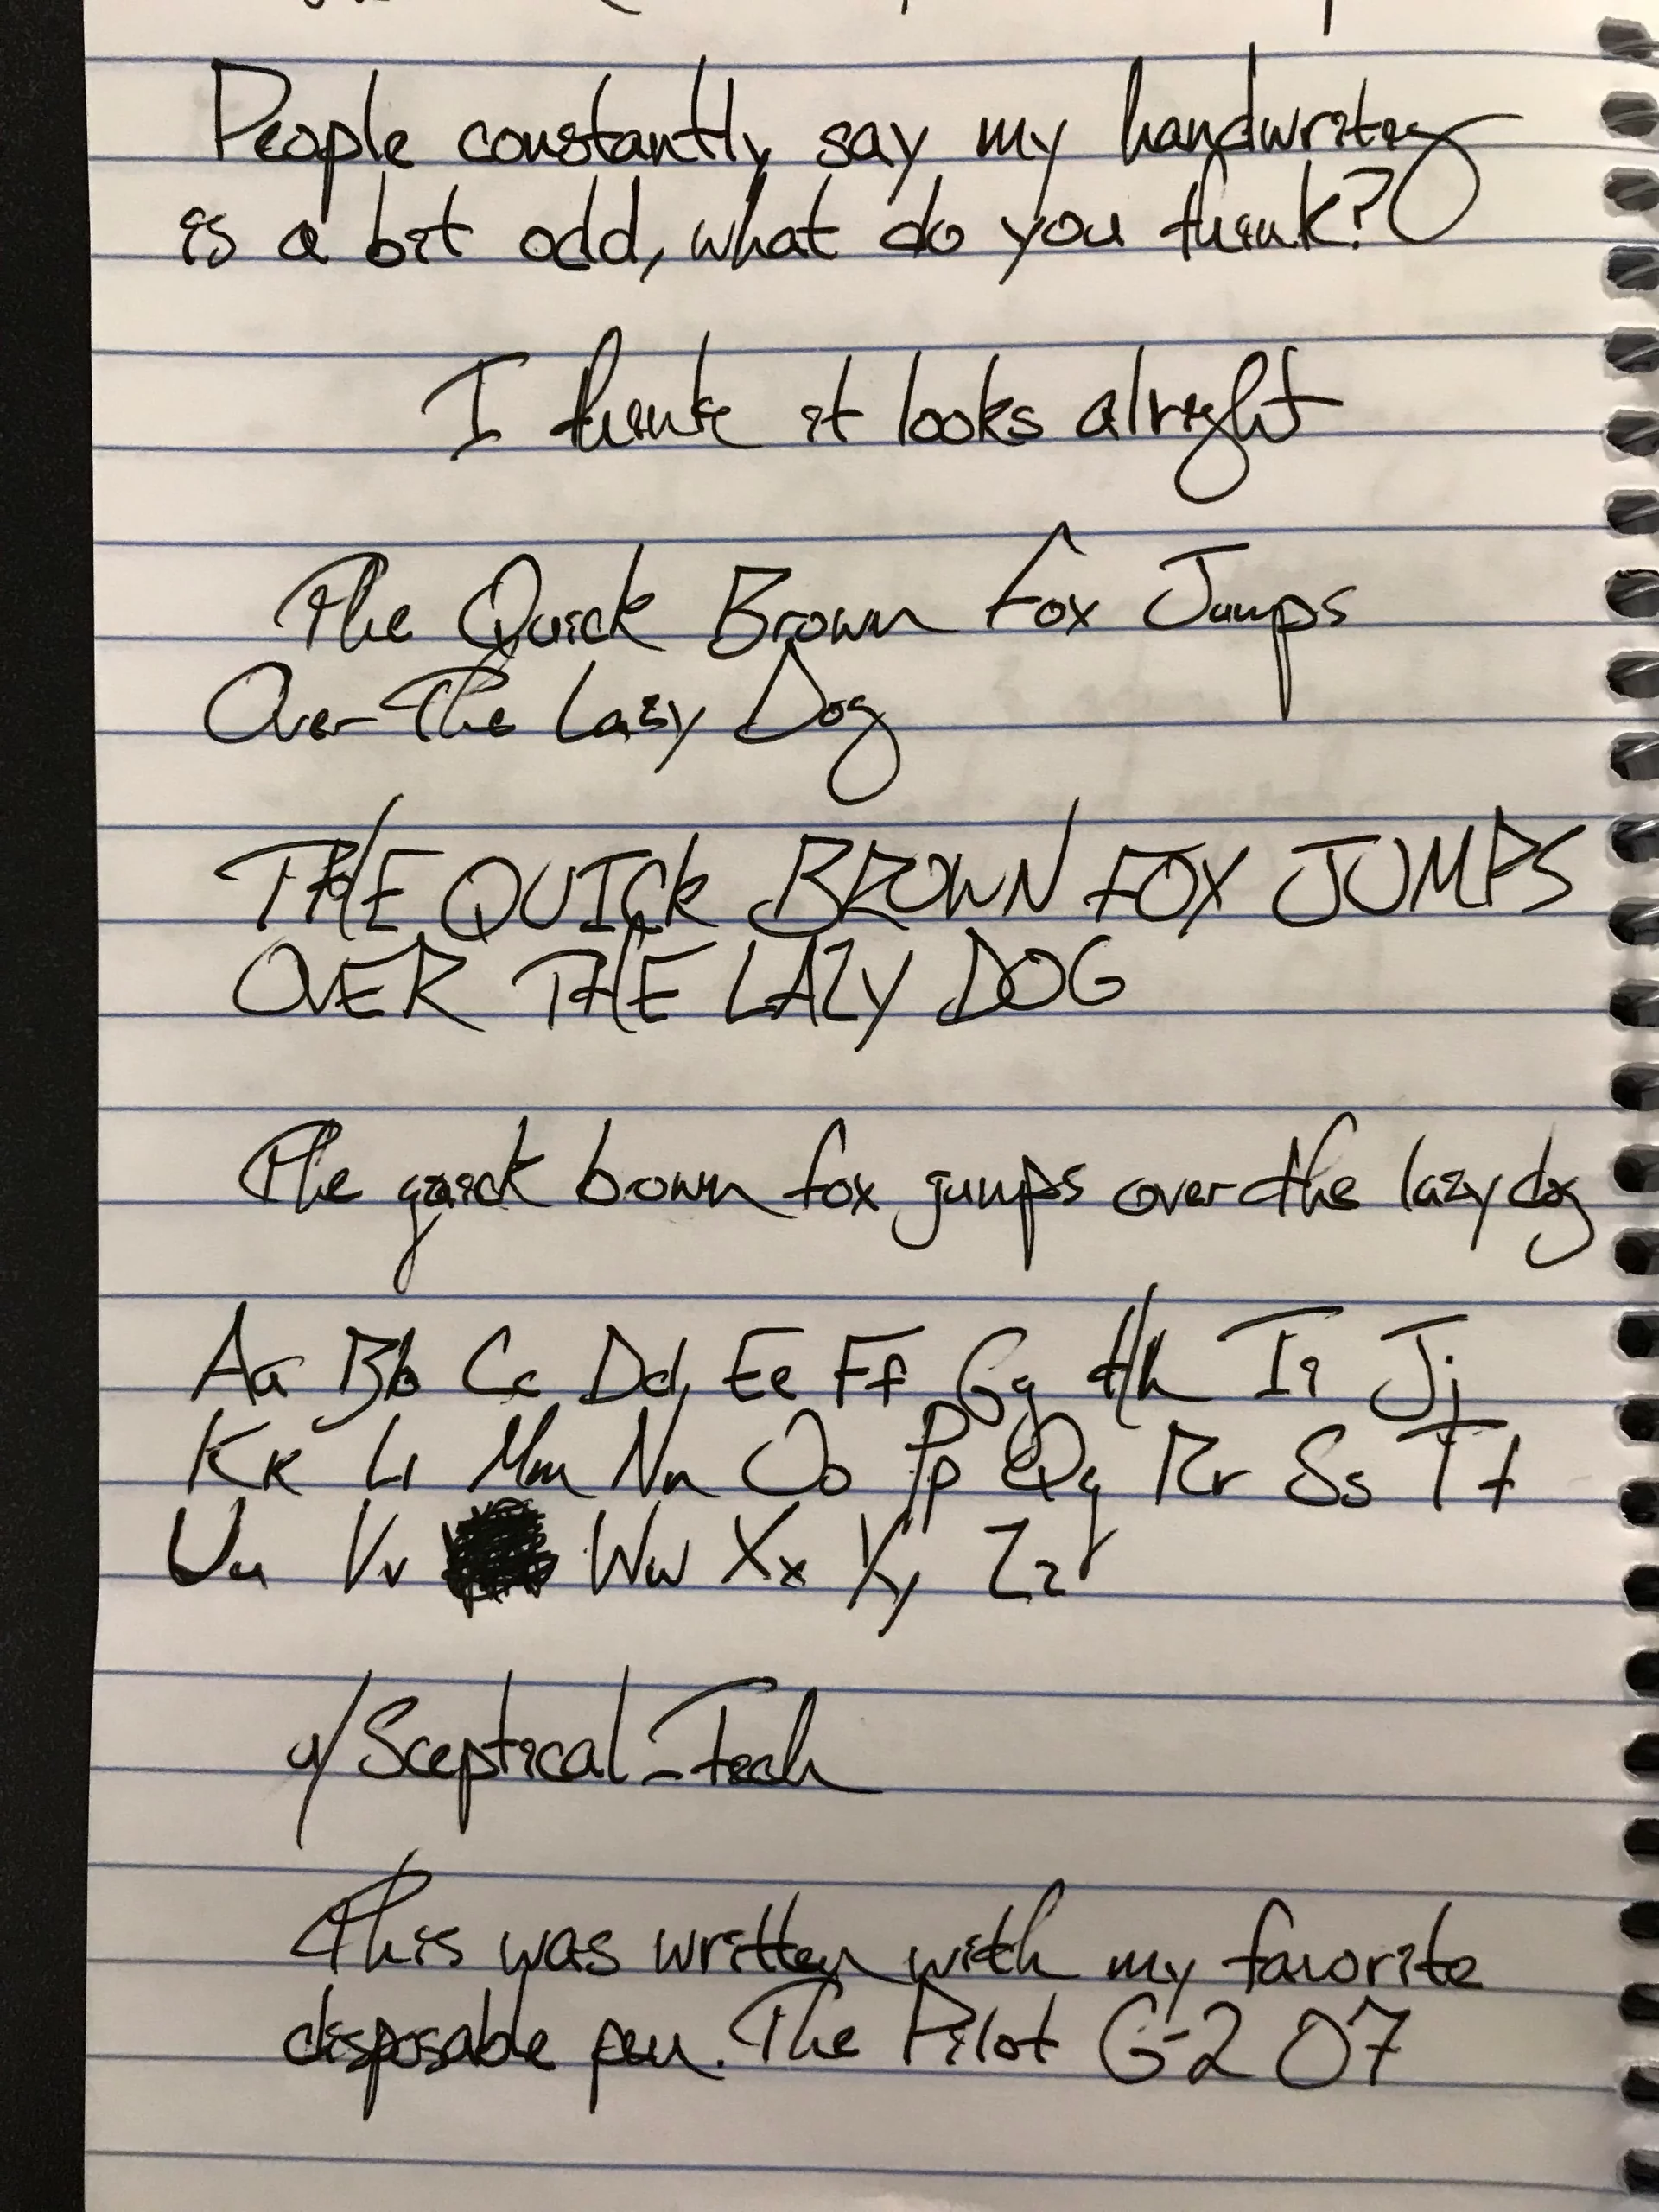 People constantly say my handwriting
is a bit odd, what do you think?
I think it looks alright
The Quick Brown Fox Jumps
Over The Lazy Dog
THE QUICK BROWN FOX JUMPS
OVER THE LAZY DOG
The quick brown fox jumps over the lazy dog
Aa Bb Cc Dd Ee Ff Gg Hh Ii Jj
Kk Ll Mm Nn Oo Pp Qq Rr Ss Tt
Uu Vv Ww Xx Yy Zz
u/Sceptical_Tech
This was written with my favorite
disposable pen. The Pilot G-2 07